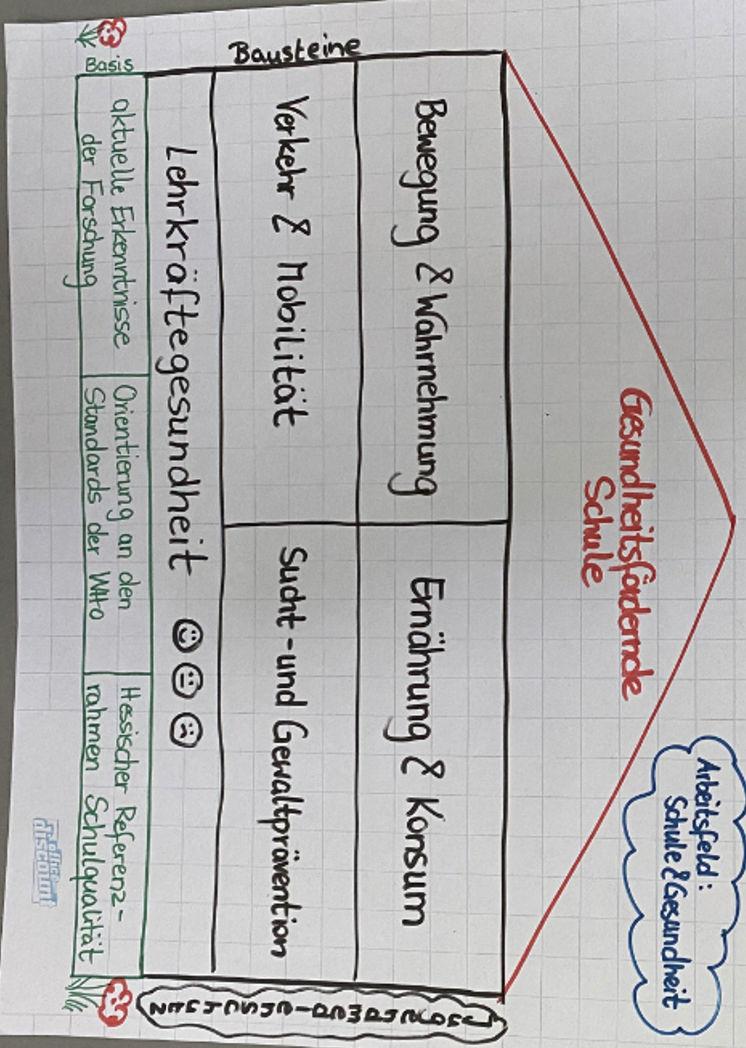 Arbeitsfeld:
Schule & Gesundheit
Gesundheitsfördernde
Schule
Bausteine
Bewegung & Wahrnehmung
Ernährung & Konsum
Verkehr & Mobilität
Sucht-und Gewaltprävention
Lehrkräftegesundheit
Basis
aktuelle Erkenntnisse
der Forschung
Orientierung an den
Standards der WHO
Hessischer Referenz-
rahmen Schulqualität
discount